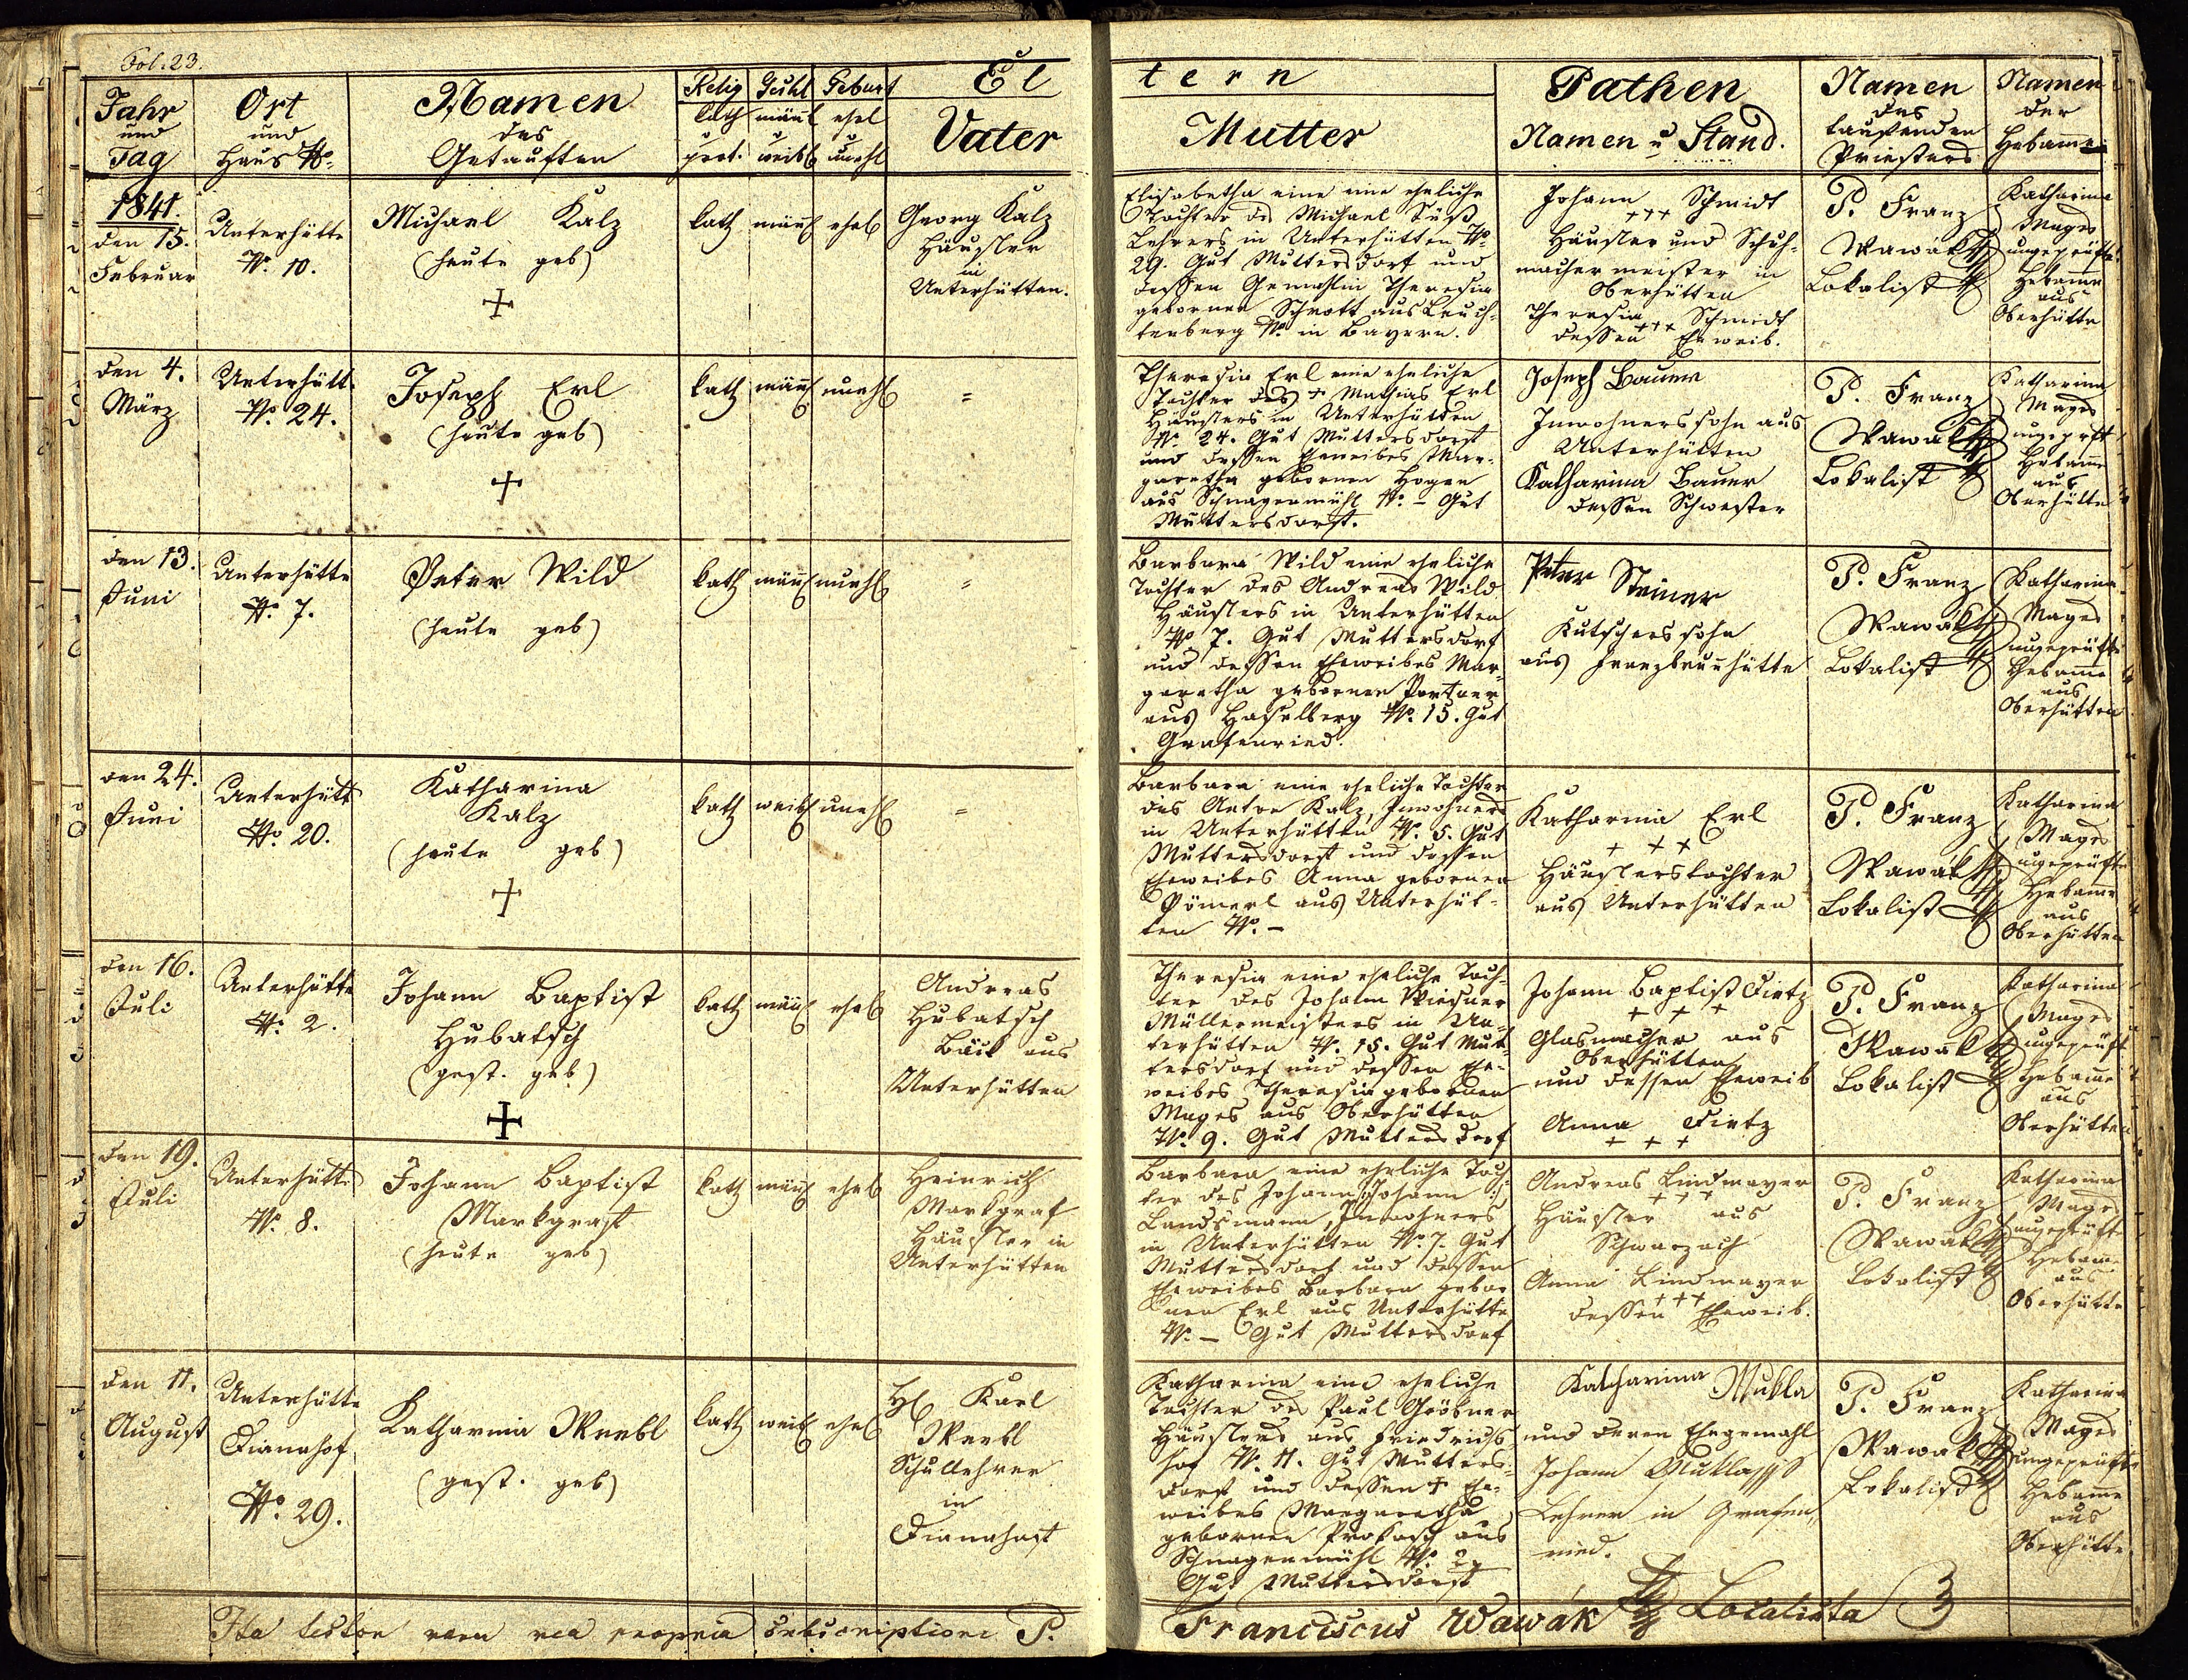 Fol. 23.
Jahr
und
Tag
Ort
und
Haus No.
Namen
des
Getauften
Relig
kath
u
prot.
Geschl
männl
u
weibl
Geburt
ehel
u
unehl
El
Vater
tern
Mutter
Pathen
Namen u Stand.
Namen
des
taufenden
Priesters
Namen
der
Hebamme
1841.
den 15.
Februar
Unterhütte
No. 10.
Michael Kalz
(heute geb)
+
kath
männl
ehel
Georg Kalz
Häusler
in
Unterhütten.
Elisabetha eine eheliche
Tochter des Michael Süß
Lehrers in Unterhütten No.
29. Gut Muttersdorf und
dessen Gemahlin Theresia
gebornen Schrott aus Leuch-
tenberg No. in Bayern.
Johann Schmidt
+++
Häusler und Schuh-
machermeister in
Oberhütten
Theresia Schmidt
+++
dessen Eheweib.
P. Franz
Wawák
Lokalist
Katharina
Mages
ungeprüfte
Hebamme
aus
Oberhütte
den 4.
März
Unterhütt
No. 24.
Joseph Erl
(heute geb)
+
kath
männl
unehl
=
Theresia Erl eine eheliche
Tochter des + Mathias Erl
Häuslers in Unterhütten
No. 24. Gut Muttersdorf
und dessen Eheweibes Mar-
garetha gebornen Hogen
aus Schnagenmühl No. - Gut
Muttersdorf.
Joseph Bauer
Inwohnerssohn aus
Unterhütten
Katharina Bauer
dessen Schwester
P. Franz
Wawák
Lokalist
Katharina
Mages
ungeprft
Hebamme
aus
Oberhütte
den 13.
Juni
Unterhütte
No. 7.
Peter Wild
(heute geb)
kath
männl
unehl
=
Barbara Wild eine eheliche
Tochter des Andreas Wild
Häuslers in Unterhütten
No 7. Gut Muttersdorf
und dessen Eheweibes Mar-
garetha gebornen Portner
aus Haselberg No. 15. Gut
Grafenried.
Peter Steiner
Kutscherssohn
aus Franzbrunnhütte
P. Franz
Wawák
Lokalist
Katharina
Mages
ungeprüfte
Hebamme
aus
Oberhütten
den 24.
Juni
Unterhütt
No. 20.
Katharina
Kalz
(heute geb)
+
kath
weibl
unehl
=
Barbara eine eheliche Tochter
des Anton Kalz, Inwohners
in Unterhütten No. 5. Gut
Muttersdorf und dessen
Eheweibes Anna gebornen
Pömerl aus Unterhüt-
ten No. -
Katharina Erl
+ + +
Häuslerstochter
aus Unterhütten
P. Franz
Wawák
Lokalist
Katharina
Mages
ungeprüfte
Hebamme
aus
Oberhütten
den 16.
Juli
Unterhütte
No. 2.
Johann Baptist
Hubatsch
(gest. geb)
+
kath
männl
ehel
Andreas
Hubatsch
Bäck aus
Unterhütten
Theresia eine eheliche Toch-
ter des Johann Wiesner
Müllermeisters in Un-
terhütten No. 15. Gut Mut-
tersdorf und dessen Ehe-
weibes Theresia gebornen
Mages aus Oberhütten
No. 9. Gut Muttersdorf
Johann Baptist Dietz
+ + +
Glasmacher aus
Oberhütten
und dessen Eheweib
Anna Dietz
+ + +
P. Franz
Wawák
Lokalist
Katharina
Mages
ungeprüft
Hebamme
aus
Oberhütten
den 19.
Juli
Unterhütte
No. 8.
Johann Baptist
Markgraf
(heute geb)
kath
männl
ehel
Heinrich
Markgraf
Häusler in
Unterhütten
Barbara eine eheliche Toch-
ter des Johann /:Johann:/
Landsmann, Inwohners
in Unterhütten No. 7. Gut
Muttersdorf und dessen
Eheweibes Barbara gebor
nen Erl aus Unterhütte
No. - Gut Muttersdorf
Andreas Lindmayer
+++
Häusler aus
Schwarzach
Anna Lindmayer
+++
dessen Eheweib.
P. Franz
Wawák
Lokalist
Katharina
Mages
ungeprüfte
Hebamme
aus
Oberhütte
den 11.
August
Unterhütte
Dianahof
No. 29.
Katharina
(gest. geb)
kath
weibl
ehel
H. Karl
Schullehrer
in
Dianahof
Katharina eine eheliche
Tochter des Paul Gröbner
Häuslers aus Friedrichs
hof No. 11. Gut Mutters-
dorf und dessen + Ehe-
weibes Margaretha
gebornen Prokosch aus
Schnagenmühl No. 2.
Gut Muttersdorf
Katharina Mukla
und deren Ehegemahl
Johann Mukla
Lehrer in Grafen
ried.
P. Franz
Wawák
Lokalist
Katharina
Mages
ungeprüfte
Hebamme
aus
Oberhütte
Ita testor mea propria subscriptione P. Franciscus Wawák Localista